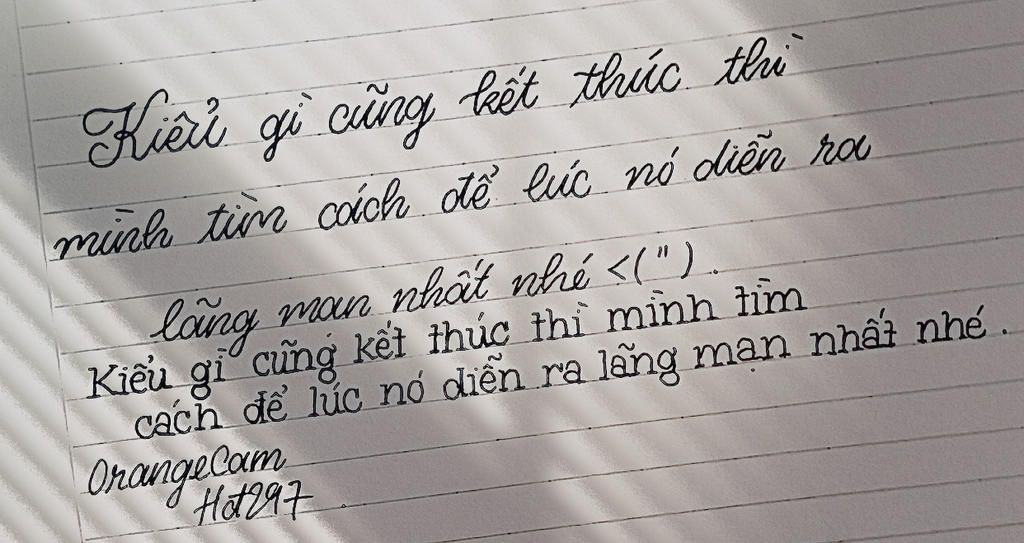 Kiểu gì cũng kết thúc thì
mình tìm cách để lúc nó diễn ra
lãng mạn nhất nhé <(").
Kiểu gì cũng kết thúc thì mình tìm
cách để lúc nó diễn ra lãng mạn nhất nhé.
OrangeCam
Hot297.